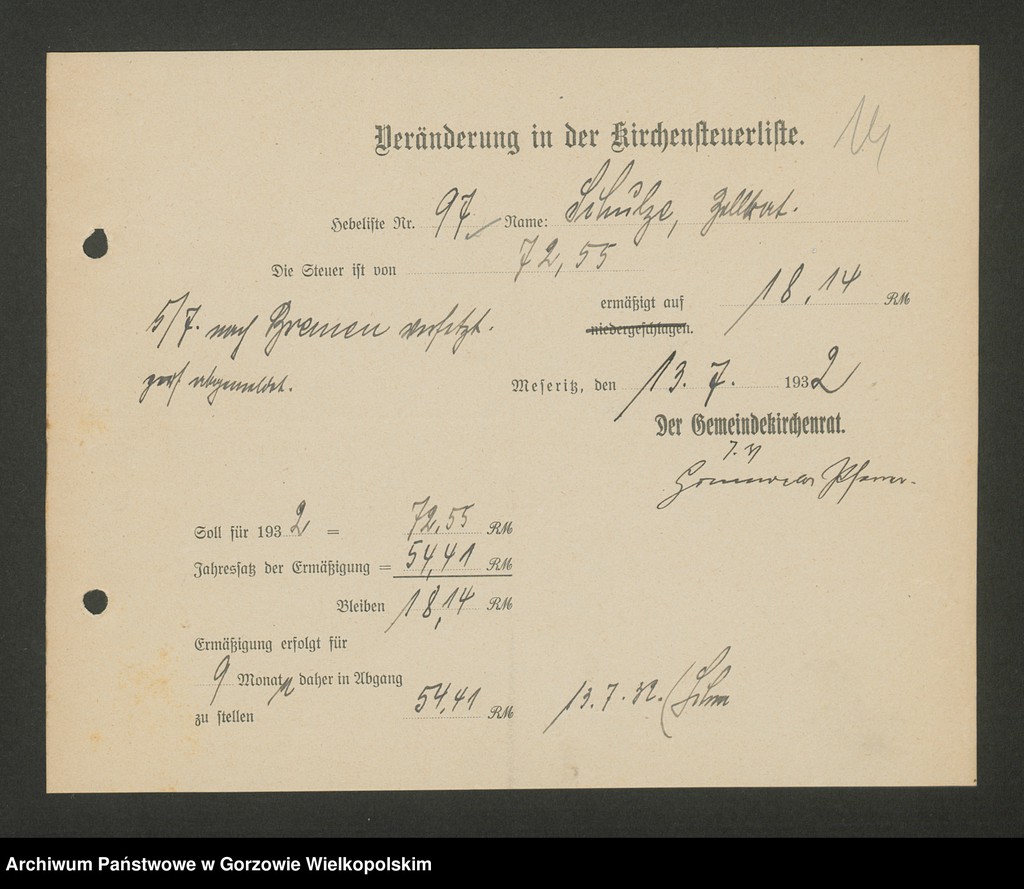 Veränderung in der Kirchensteuerliste.
Hebeliste Nr. 97 Name: Schulze, Zollrat.
Die Steuer ist von 72,55
ermäßigt auf 18,14 RM
niedergeschlagen.
5/7. nach Bremen versetzt.
abgemeldet.
Meseritz, den 13. 7. 1932
Der Gemeindekirchenrat.
I. V.
Pfarrer.
Soll für 1932 = 72,55 RM
Jahressatz der Ermäßigung = 54,41 RM
Bleiben 18,14 RM
Ermäßigung erfolgt für
9 Monate daher in Abgang
zu stellen 54,41 RM
13.7.32.
Archiwum Państwowe w Gorzowie Wielkopolskim